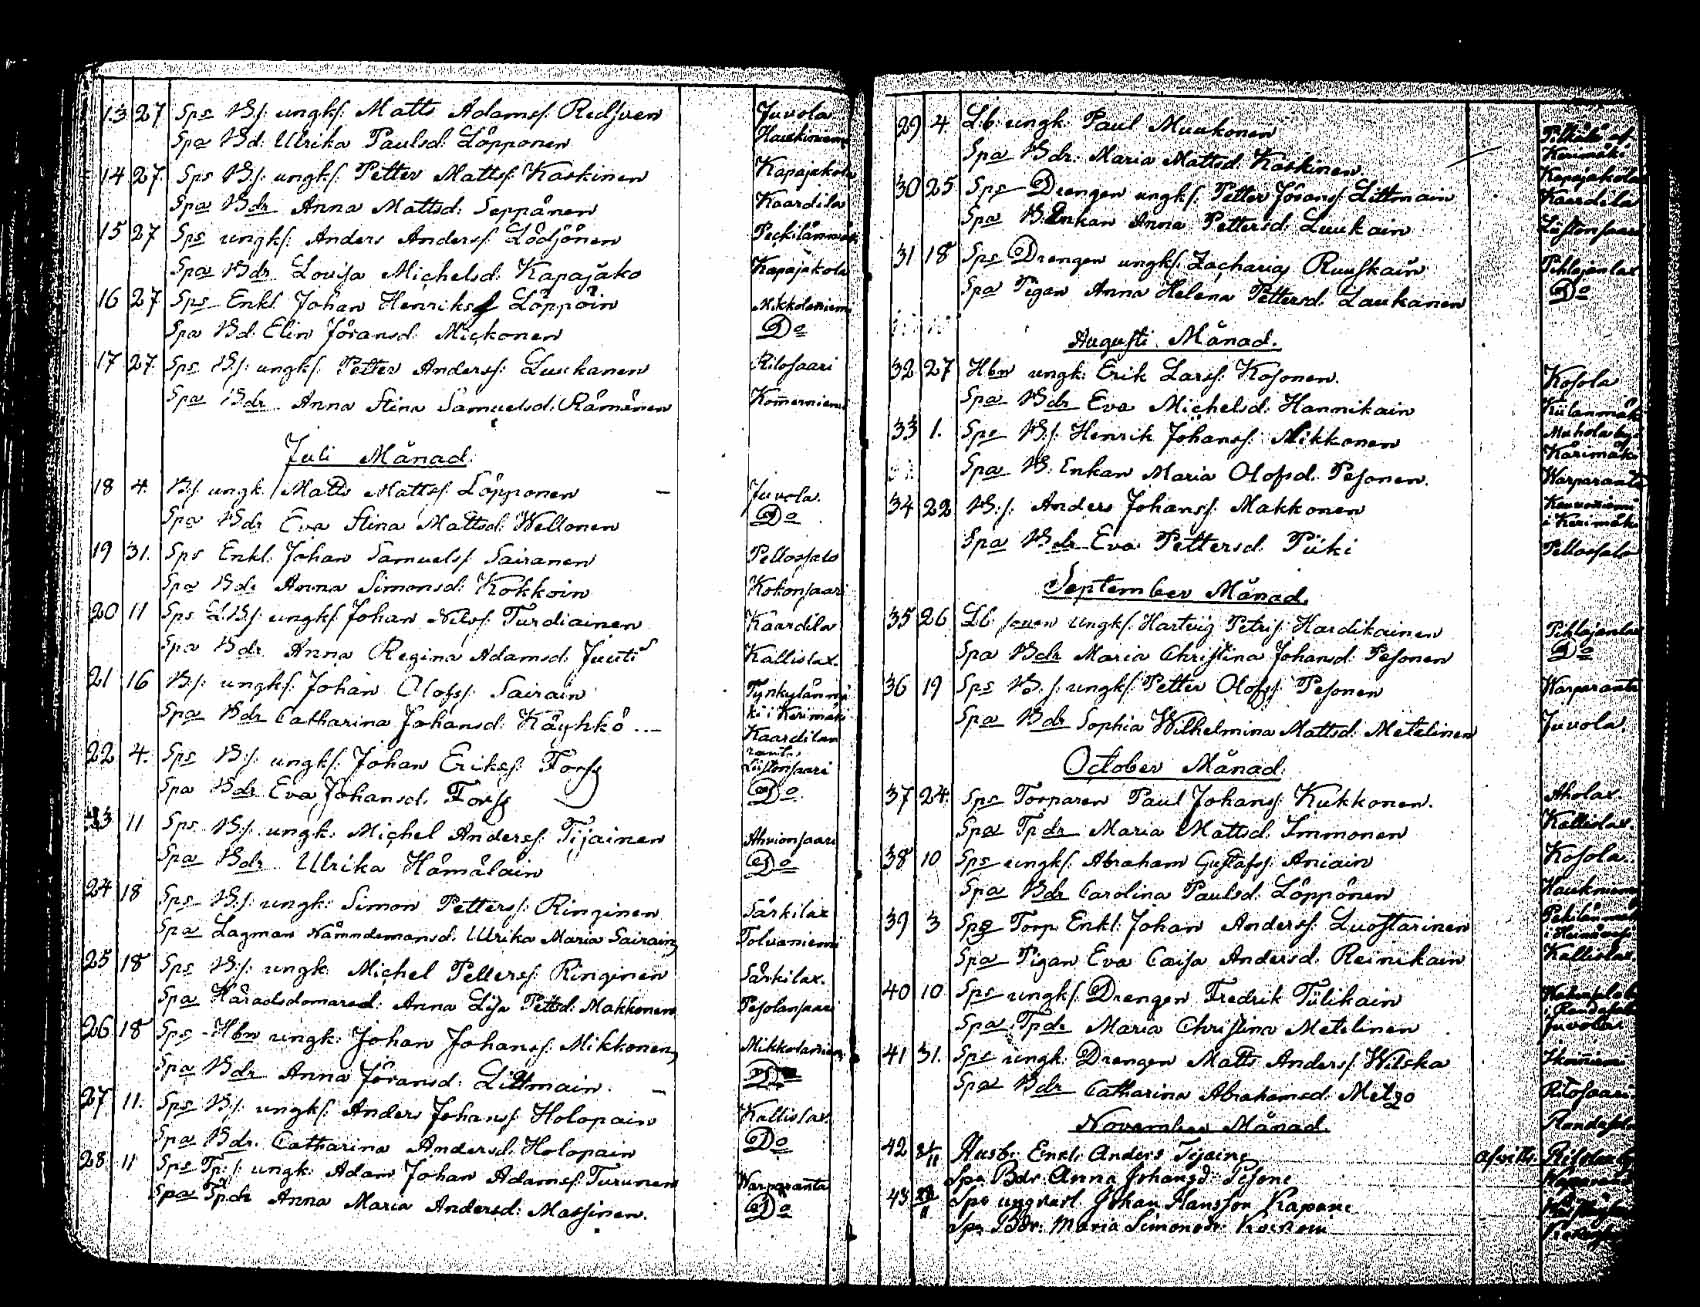 13 27 Sps B.s. ungk. Matts Adamss. Redsven Juvola
Spa Bd. Ulrika Paulsd. Löpponen Haukiniemi
14 27 Sps B.s. ungk. Petter Mattss. Kaskinen Kapajakola
Spa Bdr Anna Mattsd: Seppänen Kaardila
15 27 Sps ungk. Anders Anderss. Lödjönen
Spa Bdr. Lovisa Michelsd: Kapajäko Kapajakola
16 27 Sps Enkl Johan Henrikss. Löppöin Mikkolaniemi
Spa Bd. Elin Jöransd: Mickonen Do
17 27 Sps B.s. ungk. Petter Anderss. Luukanen Ritosaari
Spa Bdr. Anna Stina Samuelsd. Rämönen Kommerniemi
Juli Månad.
18 4. B.s. ungk. Matts Mattss. Löpponen Juvola.
Spa Bdr Eva Stina Mattsd: Weltonen Do
19 31. Sps Enkl. Johan Samuelss. Sairanen Pellossalo
Spa Bdr Anna Simonsd: Kokkoin Kokonsaari
20 11 Sps L.B.s. ungk. Johan Nilss. Turdiainen Kaardila
Spa Bdr. Anna Regina Adamsd. Juuti Kallislax.
21 16 B.s. ungk. Johan Olofss. Sairain Tynkylänmä
ki i Kerimäki
Spa Bdr Catharina Johansd: Käyhkö Kaardilan
ranta
22 4. Sps B.s. ungk. Johan Erikss. Forss Liistonsaari
Spa Bdr Eva Johansd. Forss Do
23 11 Sps B.s. ungk. Michel Anderss. Tijainen Ahvionsaari
Spa Bdr Ulrika Hämäläin Do
24 18 Sps B.s. ungk: Simon Petterss. Ringinen Särkilax
Spa Lagman Nämndemansd. Ulrika Maria Sairain Tolvaniemi
25 18 Sps B.s. ungk. Michel Petterss. Ringinen Särkilax.
Spa Häradsdomared: Anna Lisa Pettd. Makkonen Pesolansaari
26 18 Sps Hbn ungk. Johan Johanss. Mikkonen Mikkolaniemi
Spa Bdr Anna Jöransd: Littmain. Do
27 11. Sps B.s. ungk. Anders Johanss. Holopain Kallislax.
Spa Bdr. Catharina Andersd. Holopain Do
28 11 Sps Tp.s. ungk. Adam Johan Adamss. Turunen Warparanta
Spa Tp.dr Anna Maria Andersd: Massinen. Do
29 4. L.b. ungk. Paul Muukonen
Kerimäki
Spa Bdr. Maria Mattsd Kaskinen. Kapajakola
30 25 Sps Drengen ungk. Petter Jöranss. Littmain Kaardila
Spa B. Enkan Anna Pettersd. Luukain Liistonsaari
31 18 Sps Drengen ungk. Zacharias Ruuskain Pihlajanlax
Spa Pigan Anna Helena Pettersd. Laukanen Do
Augusti Månad.
32 27 Hbn ungk. Erik Larss. Kosonen. Kosola
Spa Bdr Eva Michelsd: Hannikain
33 1. Sps B.s. Henrik Johanss. Mikkonen
Kärimäki
Spa B. Enkan Maria Olofsd. Pesonen. Warparanta
34 22 B.s. Anders Johanss. Makkonen
i Kerimäki
Spa Bdr Eva Pettersd: Piiki Pellossalo
September Månad.
35 26 L.b. sonen ungk. Hartvig Petris. Hardikainen Pihlajanlax
Spa Bdr Maria Christina Johansd. Pesonen Do
36 19 Sps B.s. ungk. Petter Olofss. Pesonen Warparanta
Spa Bdr Sophia Wilhelmina Mattsd. Metelinen Juvola.
October Månad.
37 24. Sps Torparen Paul Johanss. Kukkonen. Aholax.
Spa Tp.dr Maria Mattsd. Immonen Kallislax.
38 10 Sps ungk. Abraham Gustafss. Aniain Kosola.
Spa Bdr Carolina Paulsd. Löppönen
39 3 Sps Torp. Enkl. Johan Anderss. Luostarinen
Spa Pigan Eva Caisa Andersd. Reinikain Kallislax.
40 10 Sps ungk. Drengen Fredrik Tiilikain
Spa Tp.dr Maria Christina Metelinen Juvola
41 31. Sps ungk. Drengen Matts Anderss. Wilska
Spa Bdr Catharina Abrahamsd. Metzo Ritosaari
November Månad.
42 Husb. Enkl. Anders Tijaine
Spa Bdr Anna Johansd: Pesone
43 Sps ungkarl Johan Hansson Kapane
Spa Bdr. Maria Simonsdr